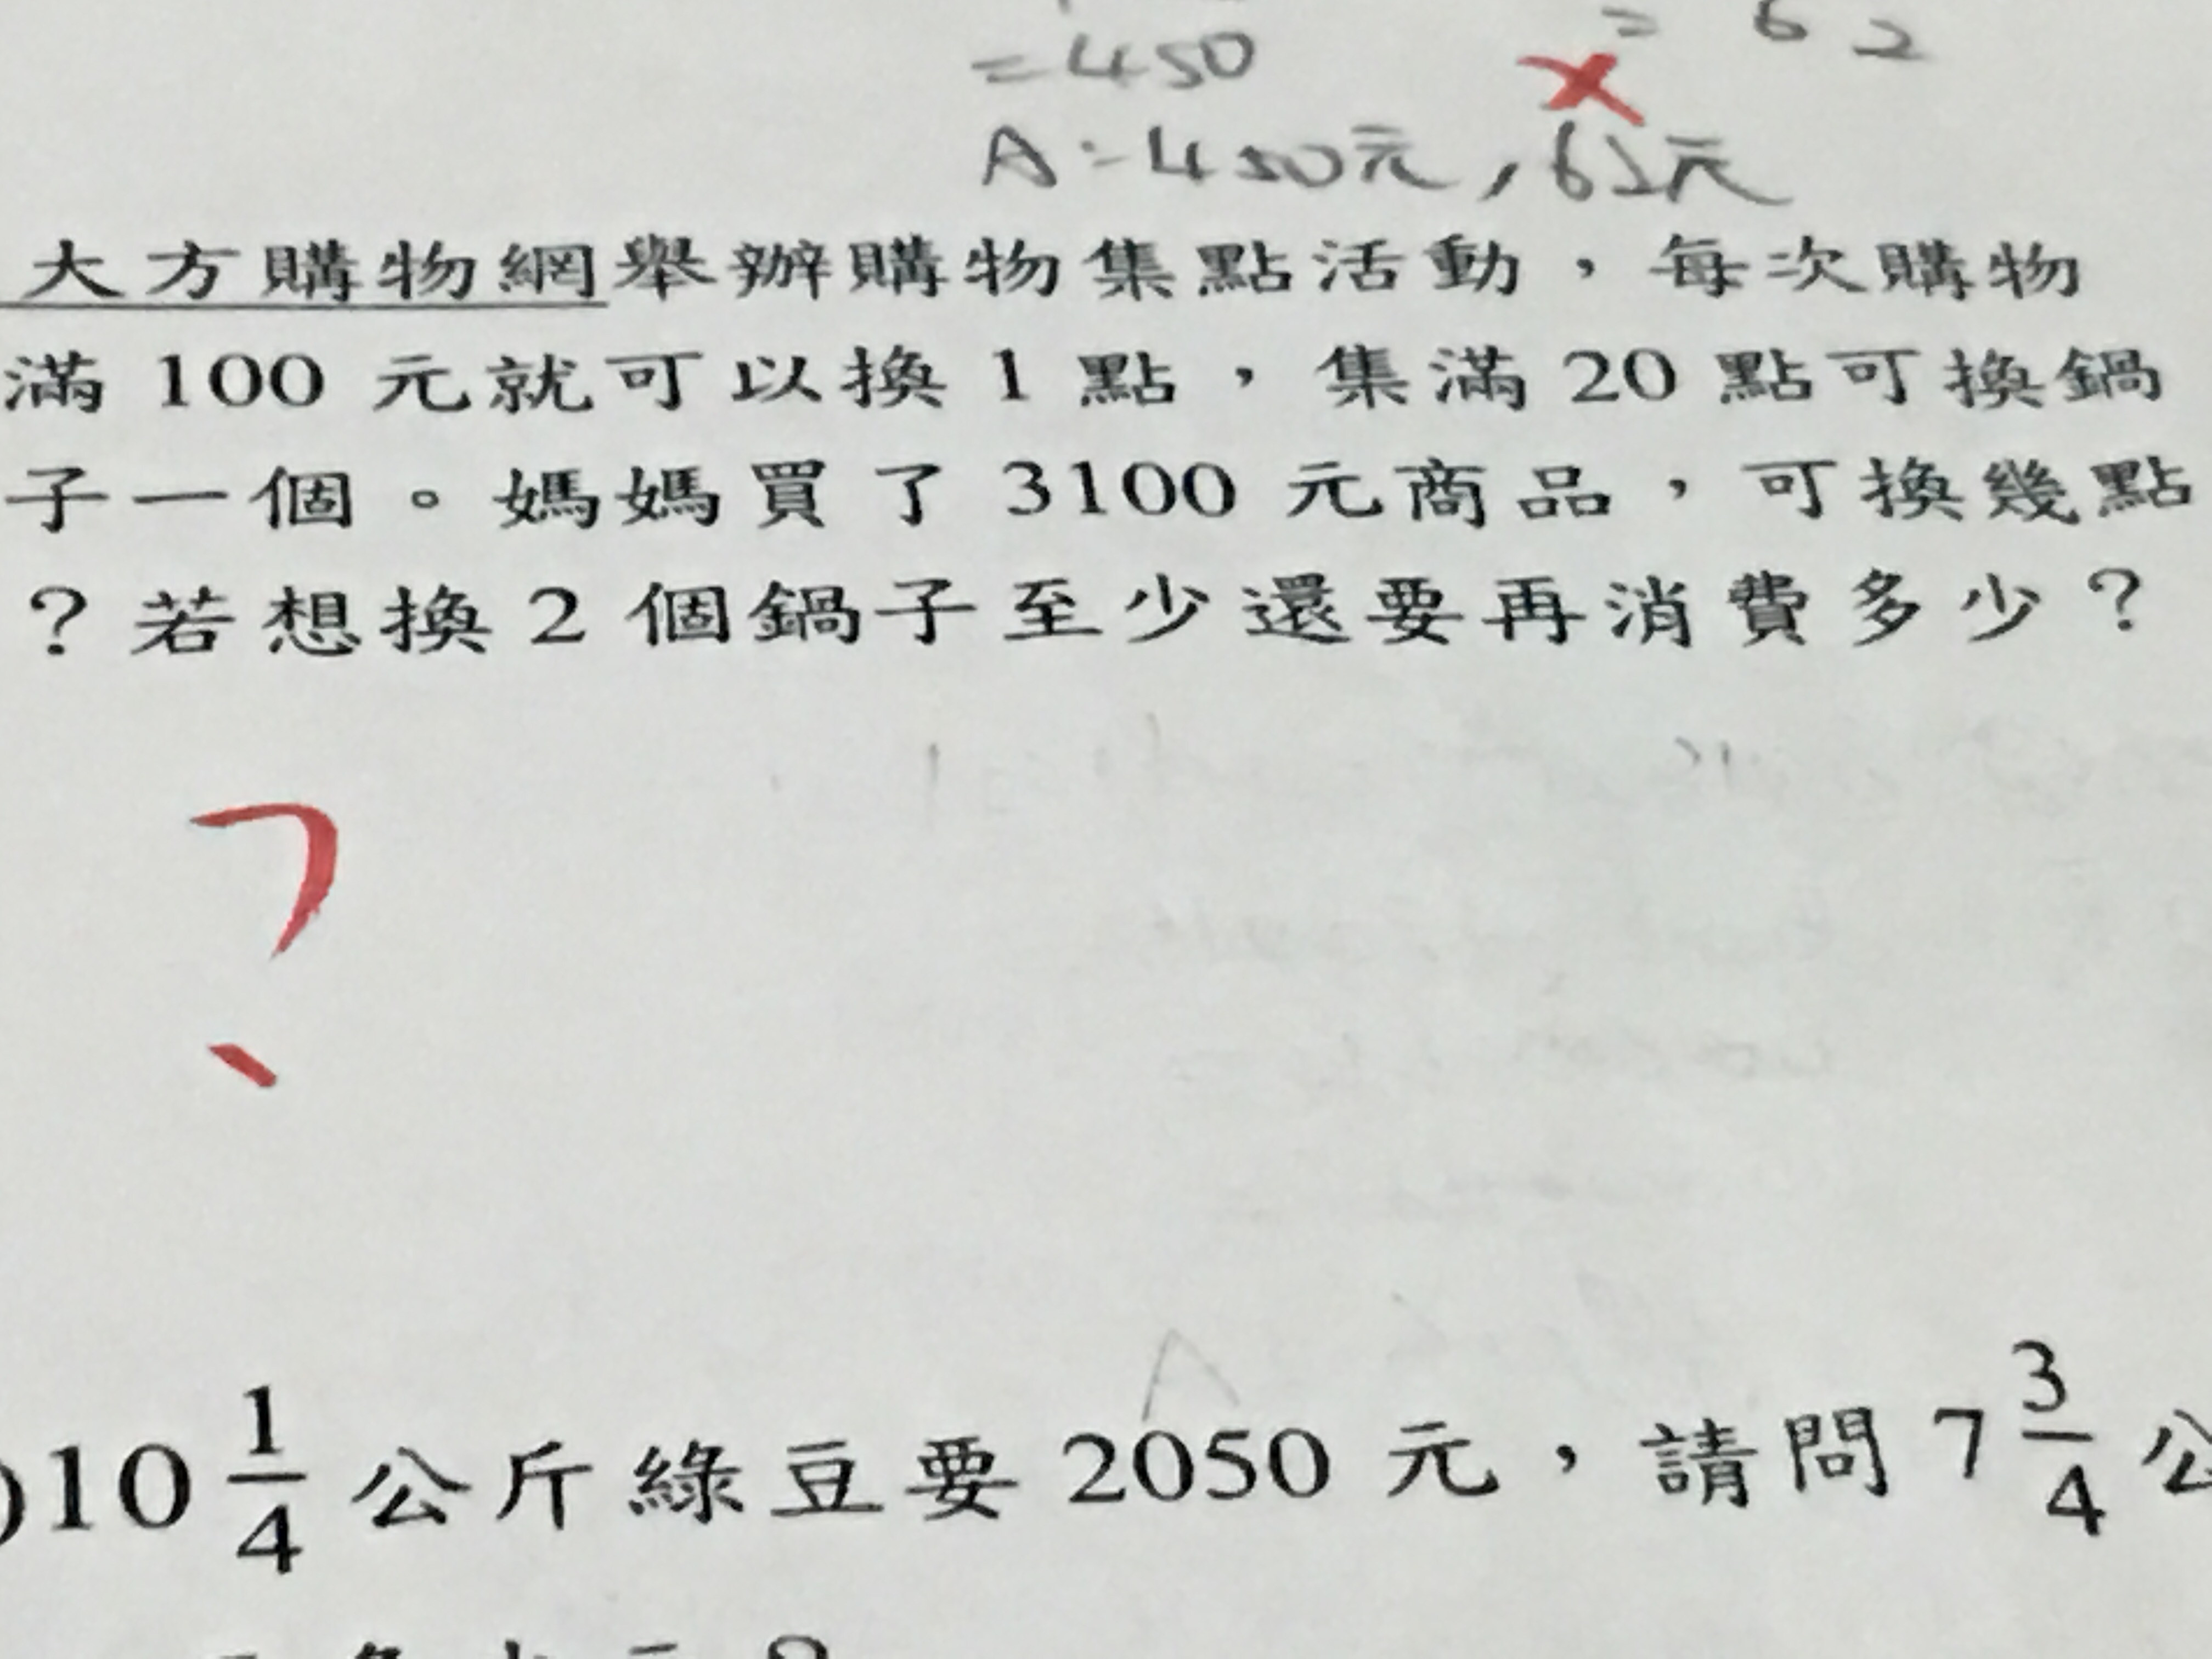 =450
= 62
A:450元,62元
大方購物網舉辦購物集點活動，每次購物
滿 100 元就可以換 1 點，集滿 20 點可換鍋
子一個。媽媽買了 3100 元商品，可換幾點
？若想換 2 個鍋子至少還要再消費多少？
?
)10 1/4 公斤綠豆要 2050 元，請問 7 3/4 公